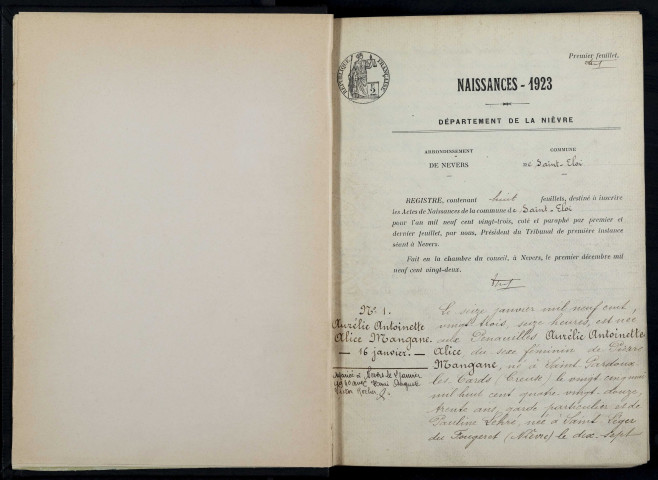 Premier feuillet.
RÉPUBLIQUE FRANÇAISE
NAISSANCES - 1923
DÉPARTEMENT DE LA NIÈVRE
ARRONDISSEMENT
DE NEVERS
COMMUNE
DE Saint-Eloi
REGISTRE, contenant huit feuillets, destiné à inscrire
les Actes de Naissances de la commune de Saint-Eloi
pour l'an mil neuf cent vingt-trois, coté et paraphé par premier et
dernier feuillet, par nous, Président du Tribunal de première instance
séant à Nevers.
Fait en la chambre du conseil, à Nevers, le premier décembre mil
neuf cent vingt-deux.
N° 1.
Aurélie Antoinette
Alice Mangane.
— 16 janvier. —
Le seize janvier mil neuf cent
vingt trois, seize heures, est née
Aurélie Antoinette
Alice, du sexe féminin de Pierre
Mangane, né à Saint Pardoux
les Cards (Creuse) le vingt cinq mai
mil huit cent quatre vingt douze,
trente ans, garde particulier et de
Pauline née à Saint Léger
de Fougeret (Nièvre) le dix-sept